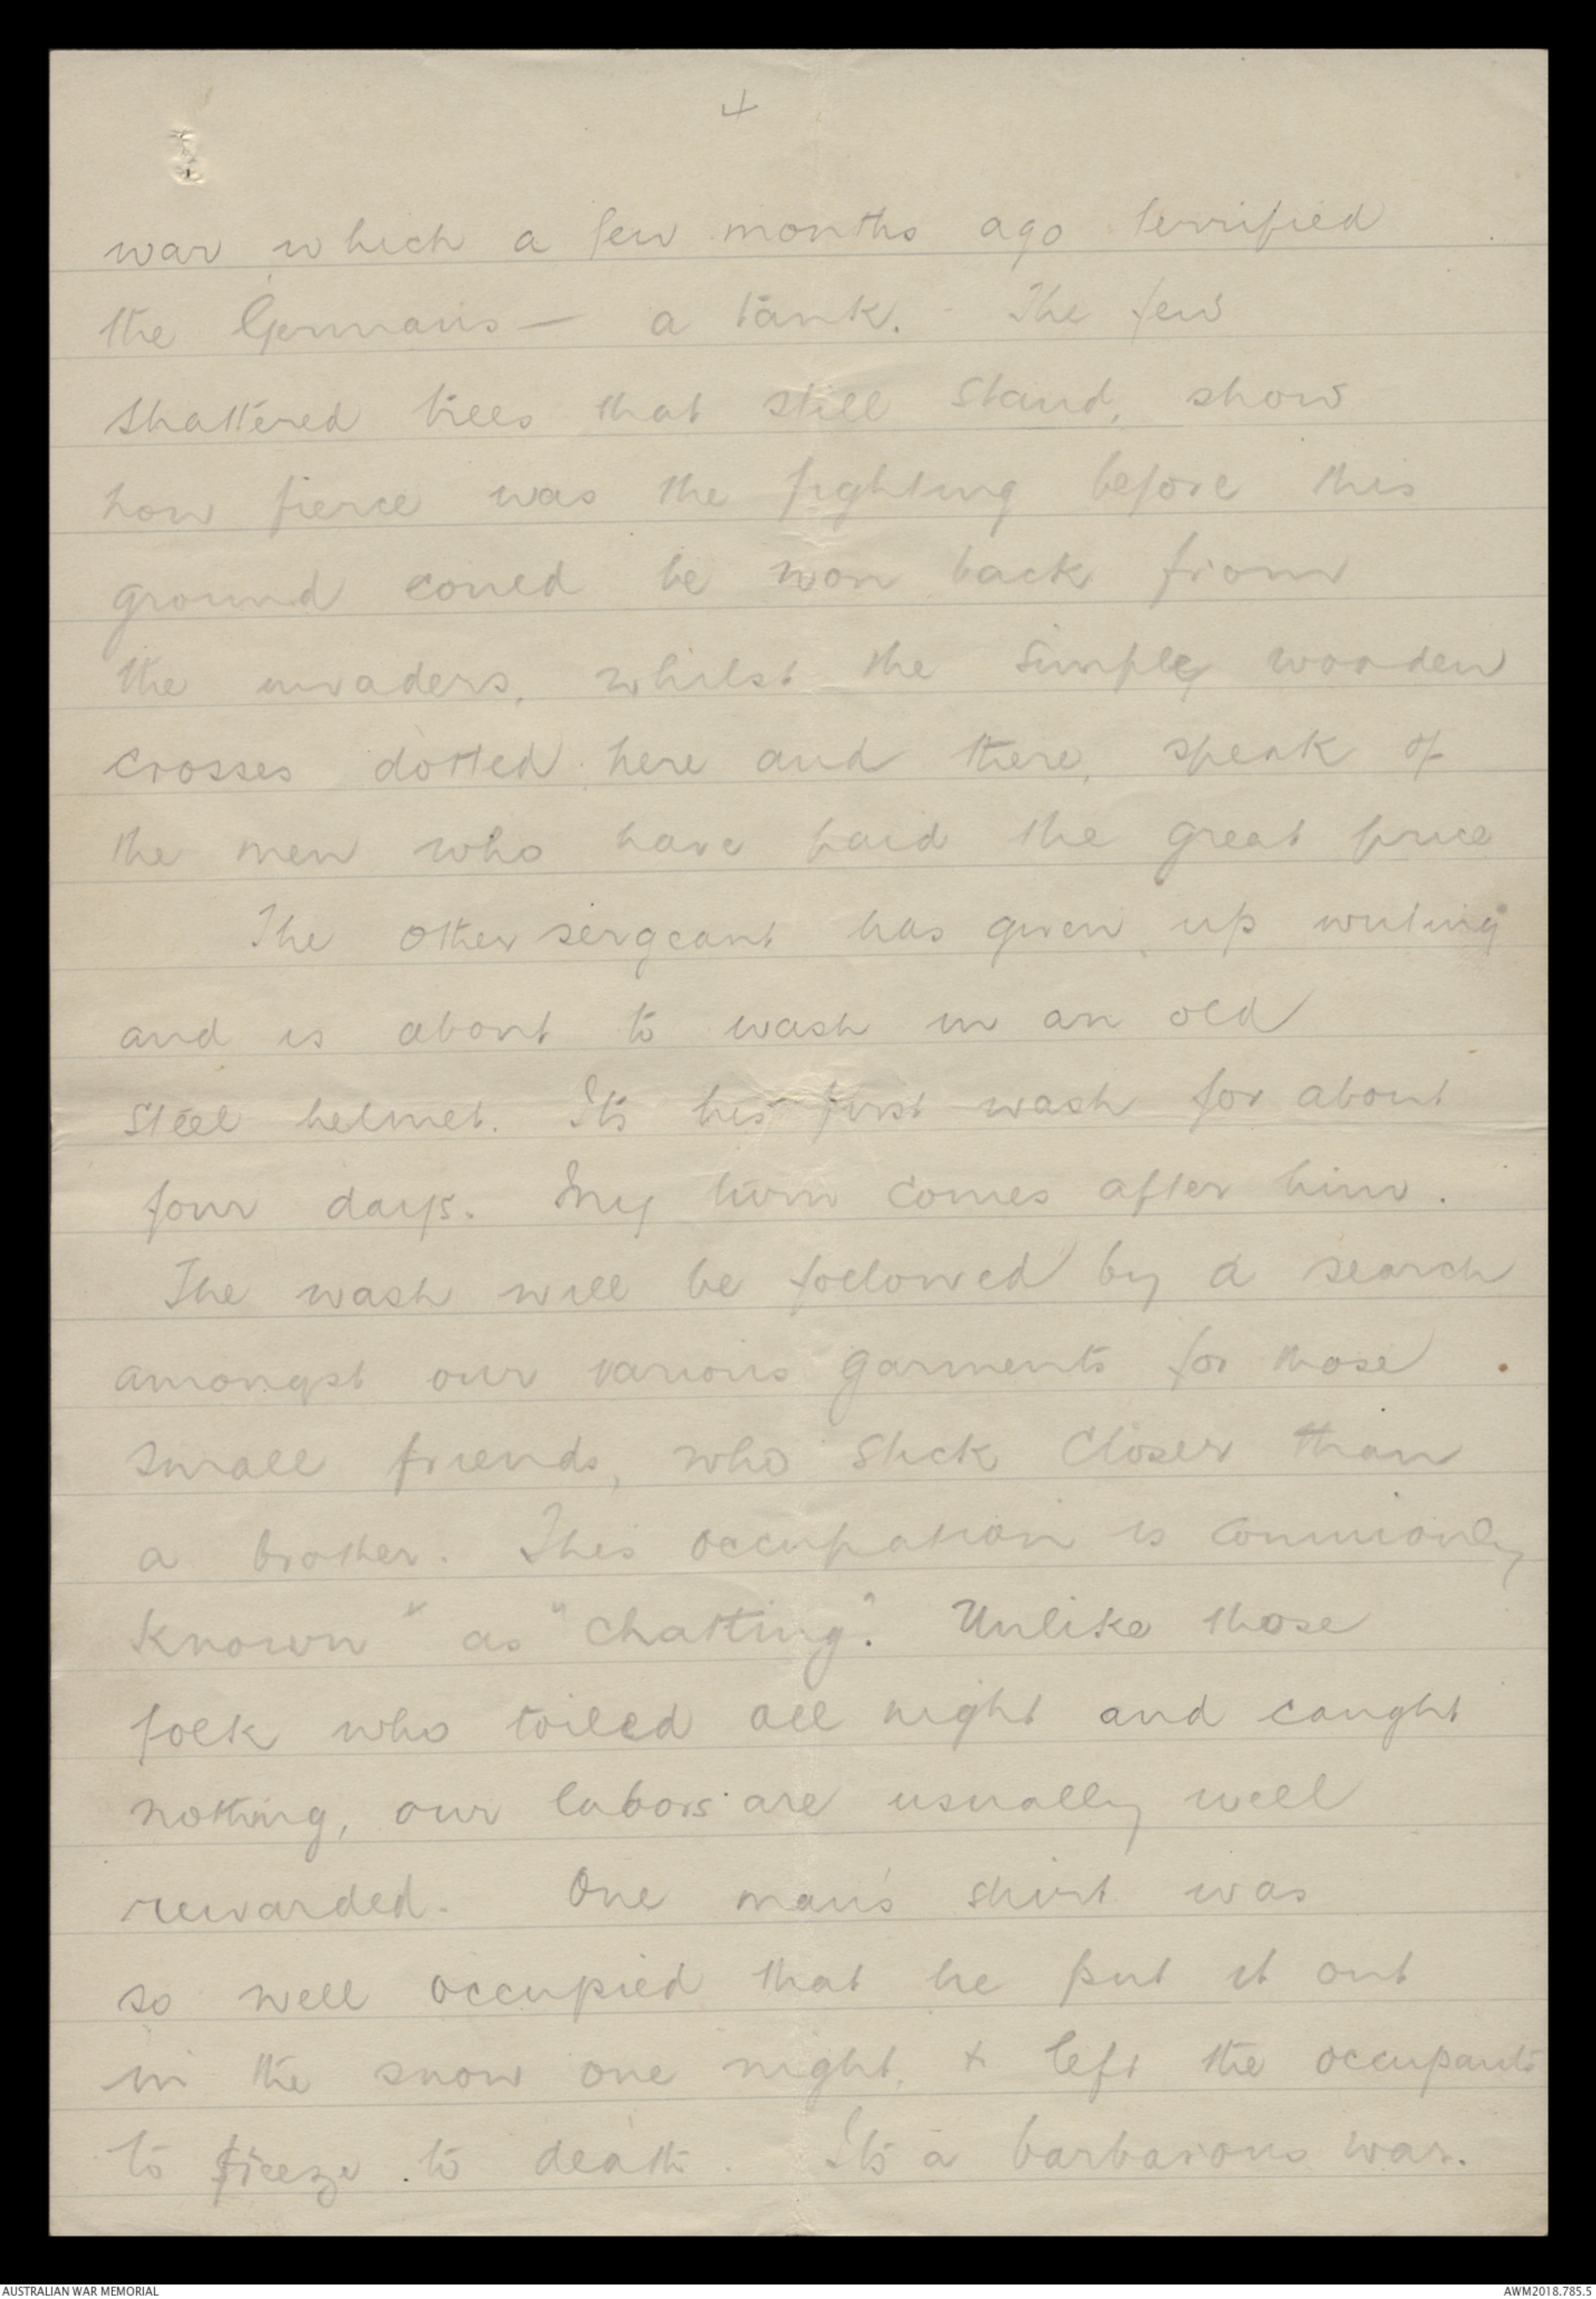 4
war which a few months ago terrified
the Germans — a tank. The few
shattered trees that still stand, show
how fierce was the fighting before this
ground could be won back from
the invaders, whilst the simple wooden
crosses dotted here and there, speak of
the men who have paid the great price
The other sergeant has given up writing
and is about to wash in an old
steel helmet. Its his first wash for about
four days. My turn comes after him.
The wash will be followed by a search
amongst our various garments for those
small friends, who stick closer than
a brother. This occupation is commonly
known " as "chatting". Unlike those
folk who toiled all night and caught
nothing, our labors are usually well
rewarded. One man's shirt was
so well occupied that he put it out
in the snow one night, + left the occupants
to freeze to death. Its a barbarous war.
AUSTRALIAN WAR MEMORIAL
AWM2018.785.5